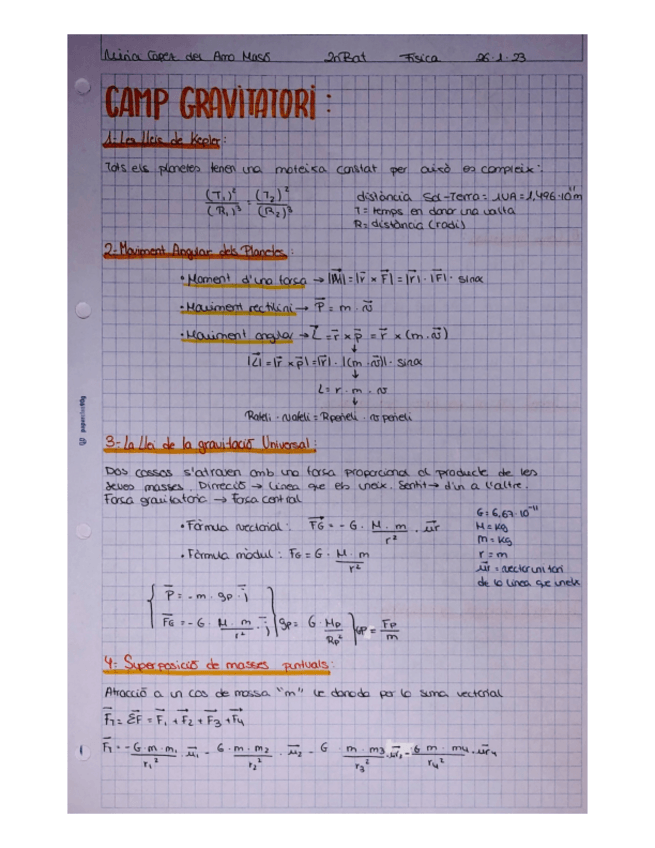 Núria López del Amo Masó 2nBat Física 26-1-23
CAMP GRAVITATORI:
1-Les lleis de Kepler:
Tots els planetes tenen una mateixa constat per això es compleix:
(T₁)²/(R₁)³ = (T₂)²/(R₂)³
distància Sol-Terra = 1UA = 1,496·10¹¹m
T = temps en donar una volta
R = distància (radi)
2-Moviment Angular dels Planetes:
• Moment d'una força → |M⃗| = |r⃗ × F⃗| = |r⃗| · |F⃗| · sinα
• Moviment rectilini → P⃗ = m · v⃗
• Moviment angular → L⃗ = r⃗ × p⃗ = r⃗ × (m·v⃗)
↓
|L⃗| = |r⃗ × p⃗| = |r⃗| · |(m·v⃗)| · sinα
↓
L = r · m · v
↓
Rafeli · vafeli = Rperieli · vperieli
3-La llei de la gravitació Universal:
Dos cossos s'atrauen amb una força proporcional al producte de les
seves masses. Direcció → línea que els uneix. Sentit → d'un a l'altre.
Força gravitatòria → Força central
• Fórmula vectorial: F⃗G = - G · M · m/r² · u⃗r
• Fórmula mòdul: FG = G · M · m/r²
G = 6,67·10⁻¹¹
M = Kg
m = Kg
r = m
u⃗r = vector unitari
de la línea que uneix
P⃗ = - m · gp · j⃗
F⃗G = - G · M · m/r² · j⃗
gp = G · Mp/Rp²
gp = Fp/m
4- Superposició de masses puntuals:
Atracció a un cos de massa "m" ve donada per la suma vectorial
F⃗T = ΣF⃗ = F⃗₁ + F⃗₂ + F⃗₃ + F⃗₄
F⃗T = - G·m·m₁/r₁² · u⃗₁ - G·m·m₂/r₂² · u⃗₂ - G · m·m₃/r₃² · u⃗r₃ - G m · m₄/r₄² · u⃗r₄